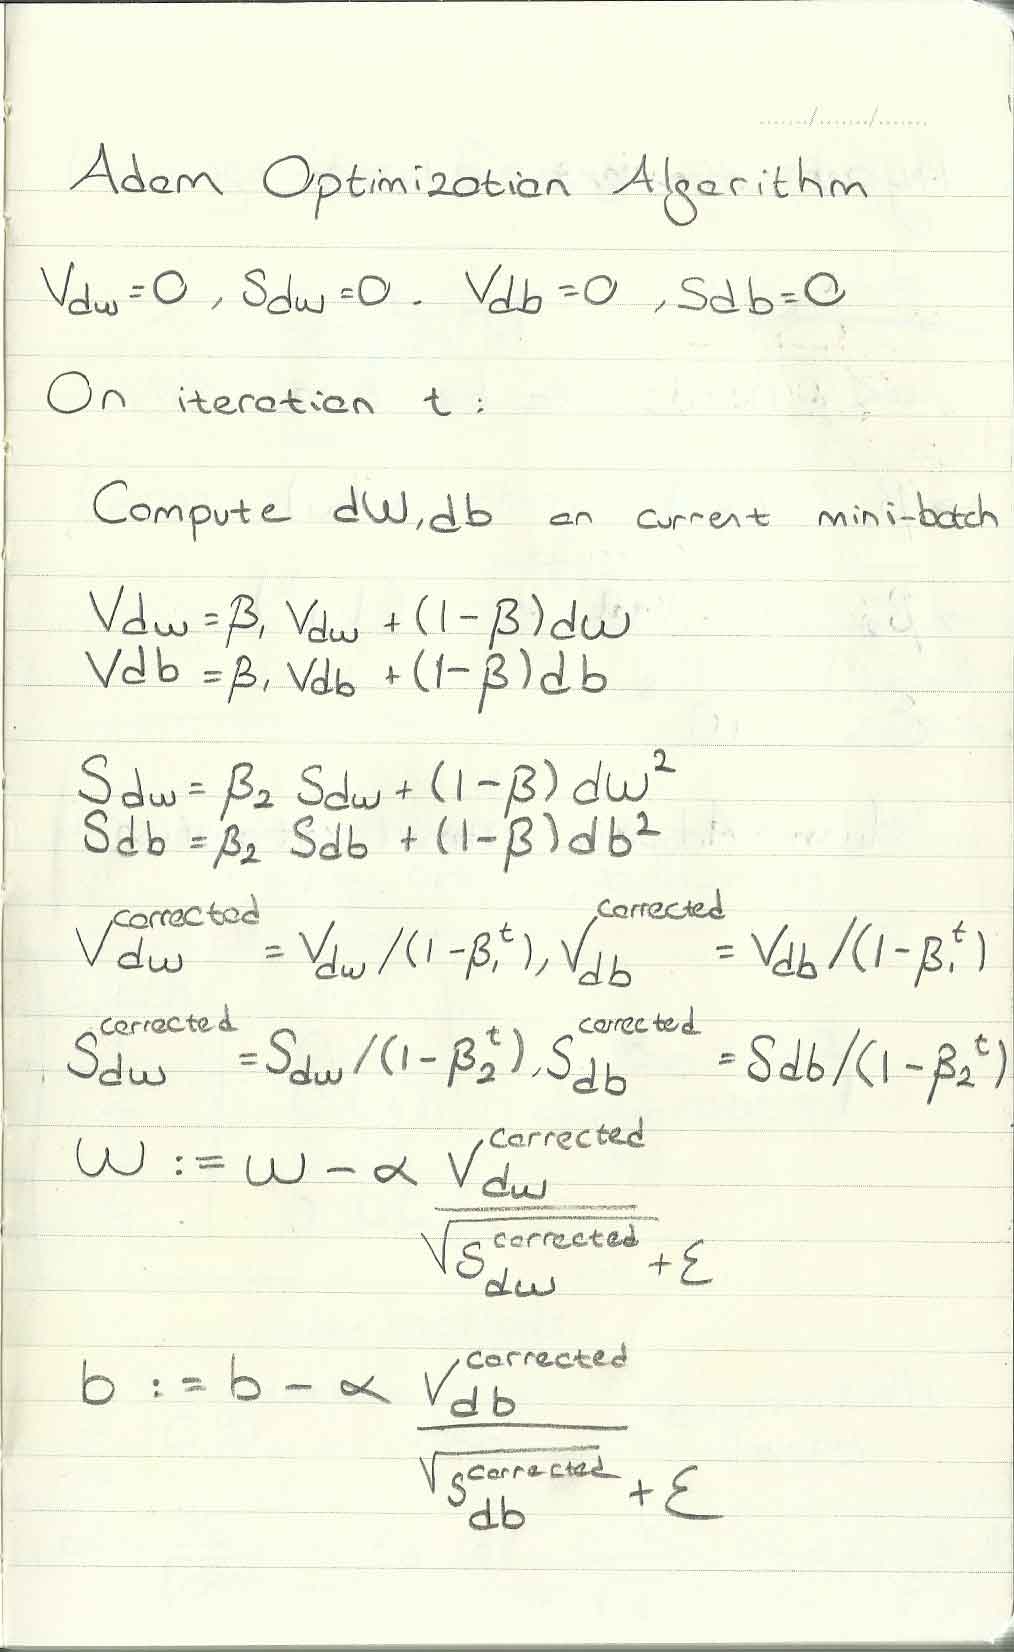 Adam Optimization Algorithm
V_dw = 0 , S_dw = 0 . V_db = 0 , S_db = 0
On iteration t :
Compute dW, db on current mini-batch
V_dw = β₁ V_dw + (1 - β) dw
V_db = β₁ V_db + (1 - β) db
S_dw = β₂ S_dw + (1 - β) dw²
S_db = β₂ S_db + (1 - β) db²
V_dw^corrected = V_dw / (1 - β₁^t), V_db^corrected = V_db / (1 - β₁^t)
S_dw^corrected = S_dw / (1 - β₂^t), S_db^corrected = S_db / (1 - β₂^t)
w := w - α V_dw^corrected
√S_dw^corrected + ε
b := b - α V_db^corrected
√S_db^corrected + ε